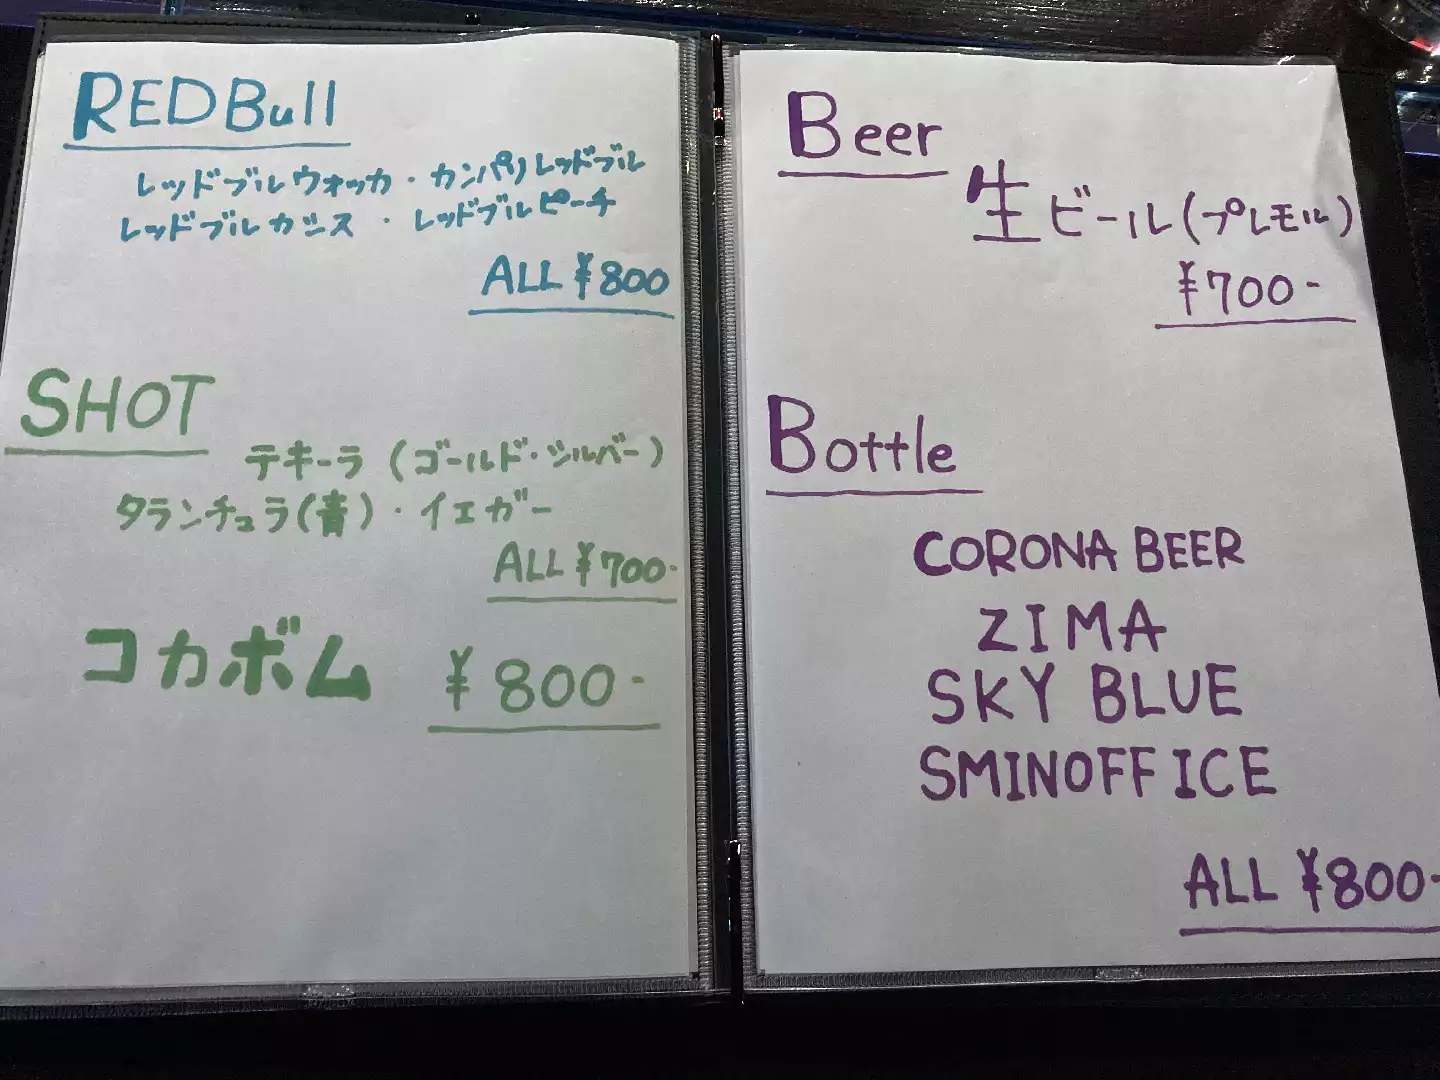 RED Bull
レッドブルウォッカ・カンパリレッドブル
レッドブルカシス・レッドブルピーチ
ALL ¥800
SHOT
テキーラ(ゴールド・シルバー)
タランチュラ(青)・イエガー
ALL ¥700-
コカボム ¥800-
Beer
生ビール(プレモル)
¥700-
Bottle
CORONA BEER
ZIMA
SKY BLUE
SMINOFF ICE
ALL ¥800-